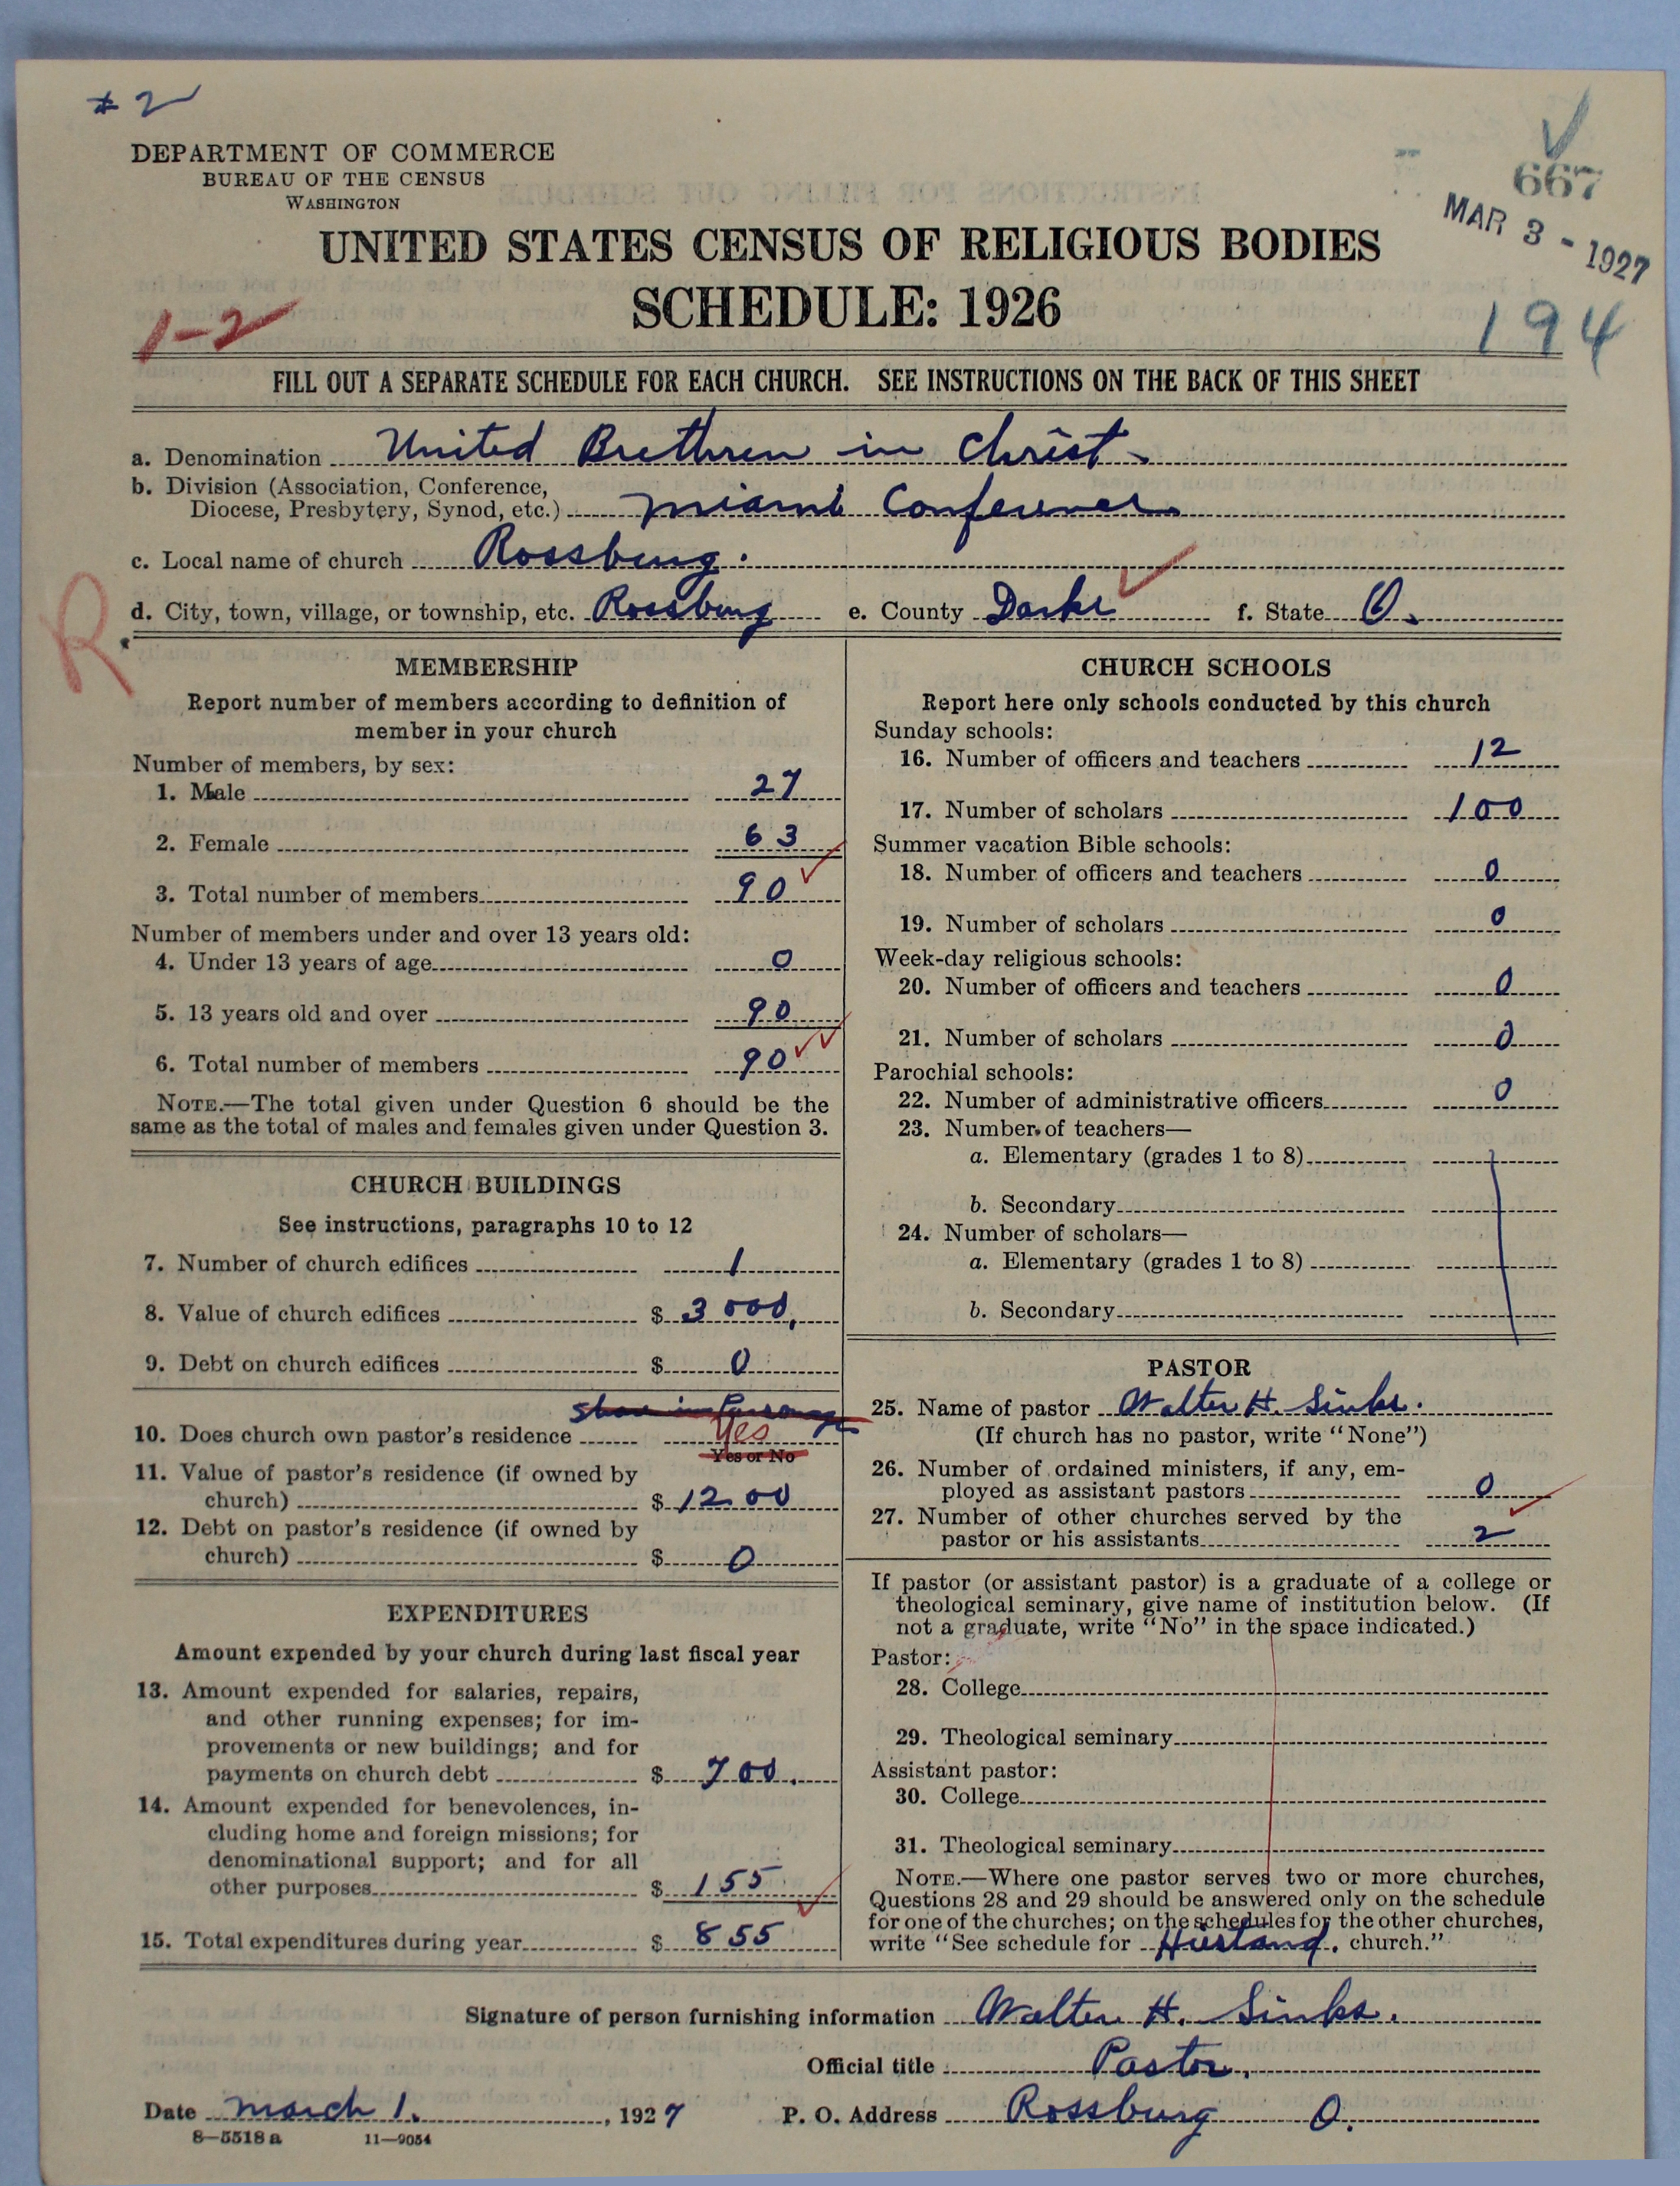 # 2
DEPARTMENT OF COMMERCE
BUREAU OF THE CENSUS
WASHINGTON
667
MAR 3 - 1927
UNITED STATES CENSUS OF RELIGIOUS BODIES
SCHEDULE: 1926
1-2
194
FILL OUT A SEPARATE SCHEDULE FOR EACH CHURCH. SEE INSTRUCTIONS ON THE BACK OF THIS SHEET
a. Denomination United Brethren in Christ
b. Division (Association, Conference,
Diocese, Presbytery, Synod, etc.) Miami Conference
c. Local name of church Rossburg.
d. City, town, village, or township, etc. Rossburg e. County Darke f. State O.
R
MEMBERSHIP
Report number of members according to definition of
member in your church
Number of members, by sex:
1. Male 27
2. Female 63
3. Total number of members 90
Number of members under and over 13 years old:
4. Under 13 years of age 0
5. 13 years old and over 90
6. Total number of members 90
NOTE.—The total given under Question 6 should be the
same as the total of males and females given under Question 3.
CHURCH BUILDINGS
See instructions, paragraphs 10 to 12
7. Number of church edifices 1
8. Value of church edifices $ 3000.
9. Debt on church edifices $ 0
Share in Parsonage
10. Does church own pastor's residence Yes
Yes or No
11. Value of pastor's residence (if owned by
church) $ 1200
12. Debt on pastor's residence (if owned by
church) $ 0
EXPENDITURES
Amount expended by your church during last fiscal year
13. Amount expended for salaries, repairs,
and other running expenses; for im-
provements or new buildings; and for
payments on church debt $ 700.
14. Amount expended for benevolences, in-
cluding home and foreign missions; for
denominational support; and for all
other purposes $ 155
15. Total expenditures during year $ 855
CHURCH SCHOOLS
Report here only schools conducted by this church
Sunday schools:
16. Number of officers and teachers 12
17. Number of scholars 100
Summer vacation Bible schools:
18. Number of officers and teachers 0
19. Number of scholars 0
Week-day religious schools:
20. Number of officers and teachers 0
21. Number of scholars 0
Parochial schools:
22. Number of administrative officers 0
23. Number of teachers—
a. Elementary (grades 1 to 8)
b. Secondary
24. Number of scholars—
a. Elementary (grades 1 to 8)
b. Secondary
PASTOR
25. Name of pastor Walter H. Sinks.
(If church has no pastor, write "None")
26. Number of ordained ministers, if any, em-
ployed as assistant pastors 0
27. Number of other churches served by the
pastor or his assistants 2
If pastor (or assistant pastor) is a graduate of a college or
theological seminary, give name of institution below. (If
not a graduate, write "No" in the space indicated.)
Pastor:
28. College
29. Theological seminary
Assistant pastor:
30. College
31. Theological seminary
NOTE.—Where one pastor serves two or more churches,
Questions 28 and 29 should be answered only on the schedule
for one of the churches; on the schedules for the other churches,
write "See schedule for church."
Signature of person furnishing information Walter H. Sinks.
Official title Pastor.
Date March 1. , 1927 P. O. Address Rossburg O.
8—5518 a 11—9054